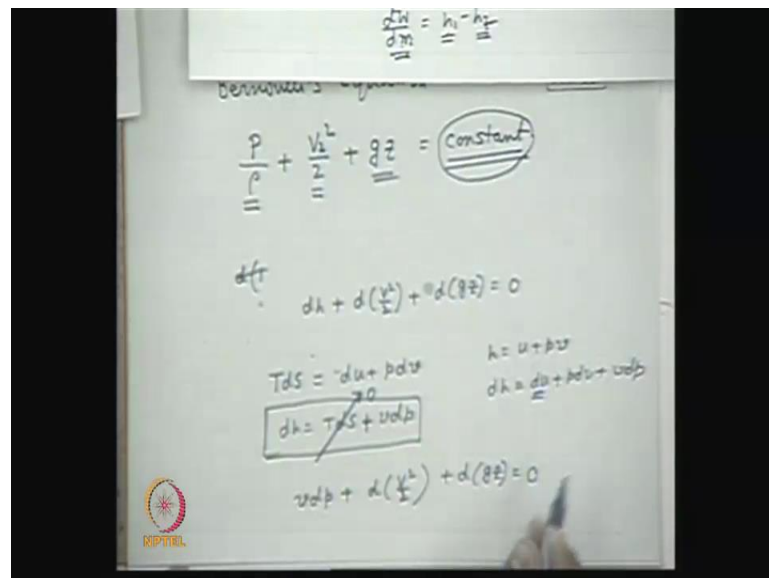 dW/dm = h₁ - h₂
Bernoulli's
P/ρ + V₂²/2 + gz = constant
dh + d(V²/2) + d(gz) = 0
h = u + pv
Tds = du + pdv
dh = du + pdv + vdp
dh = Tds + vdp
→0
vdp + d(V²/2) + d(gz) = 0
NPTEL